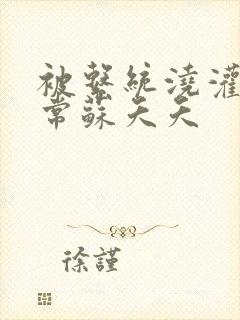 被繫統澆灌
常蘇天天
徐謹